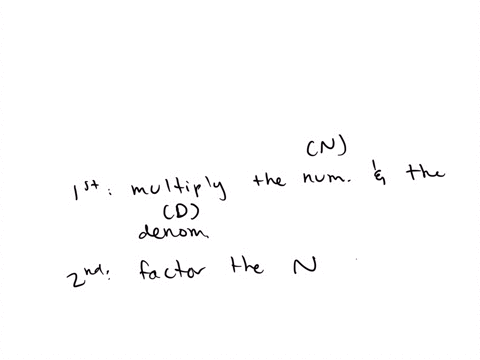 (N)
1st: multiply the num. & the
(D)
denom.
2nd: factor the N